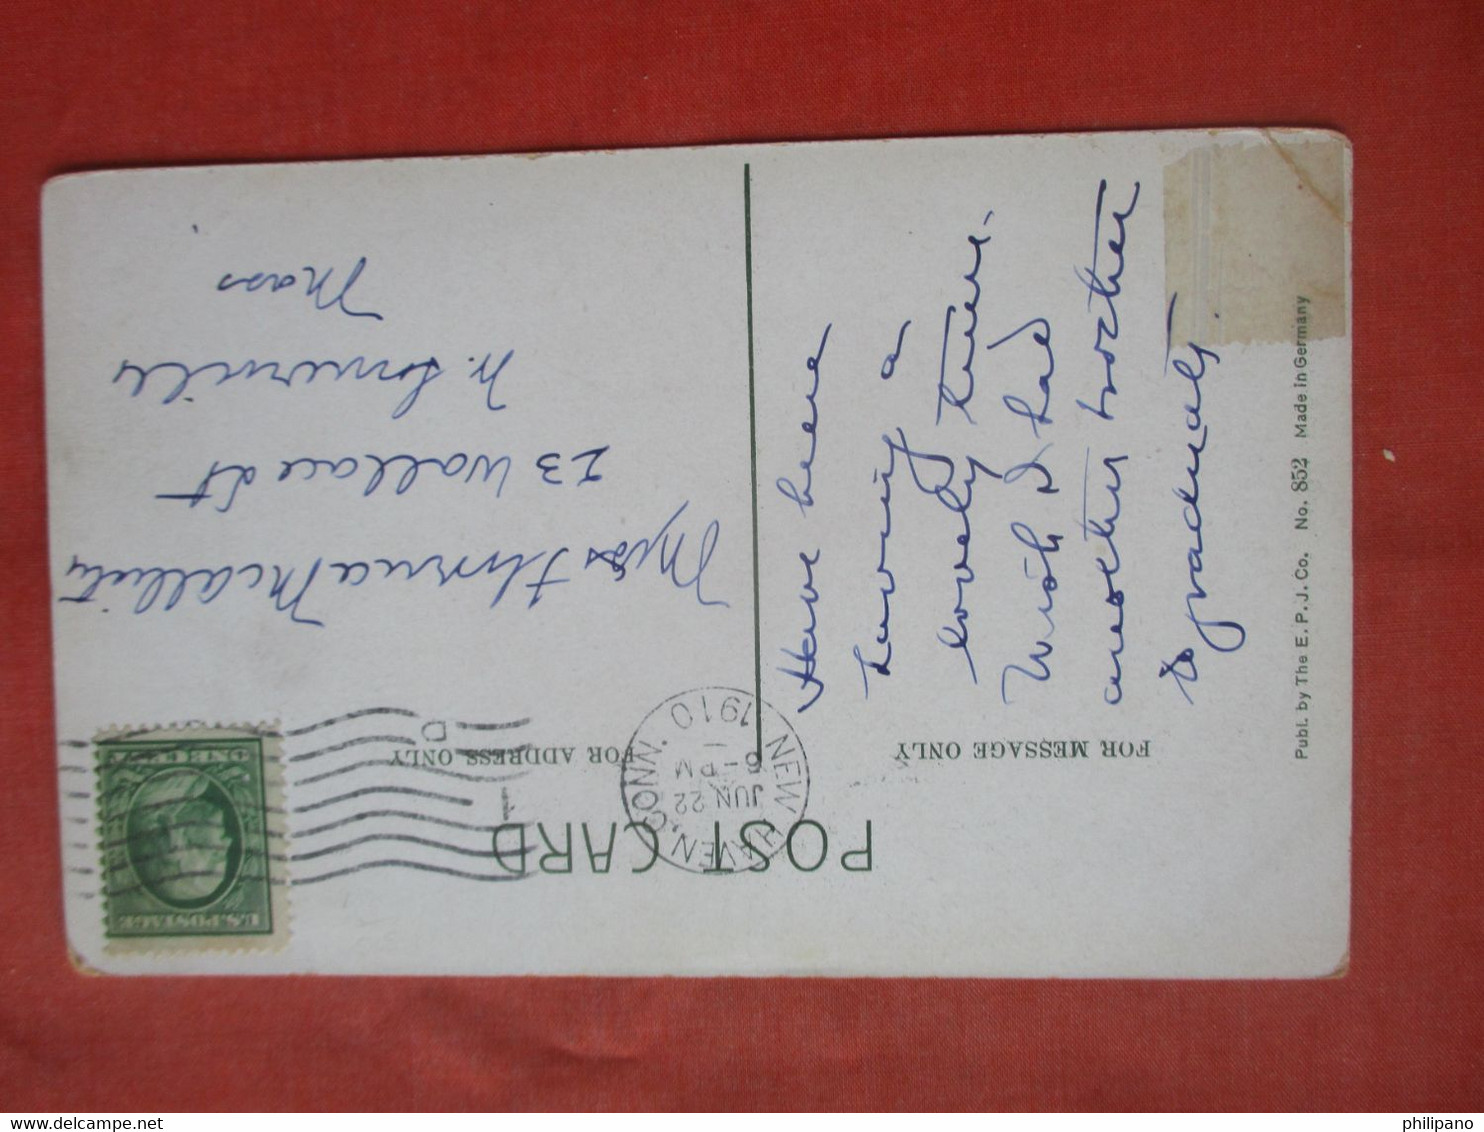 POST CARD
FOR ADDRESS ONLY
FOR MESSAGE ONLY
NEW HAVEN, CONN.
JUN 22
6-PM
1910
D
1
U.S. POSTAGE
ONE CENT
Miss Florence McAllister
23 Wallace St
W. Somerville
Mass
Have been
having a
lovely time.
Wish I had
another brother
to graduate.
Publ. by The E. P. J. Co. No. 852 Made in Germany
philipano